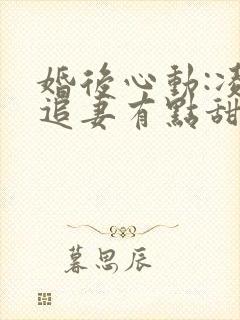 婚後心動:
追妻有點甜
暮思辰